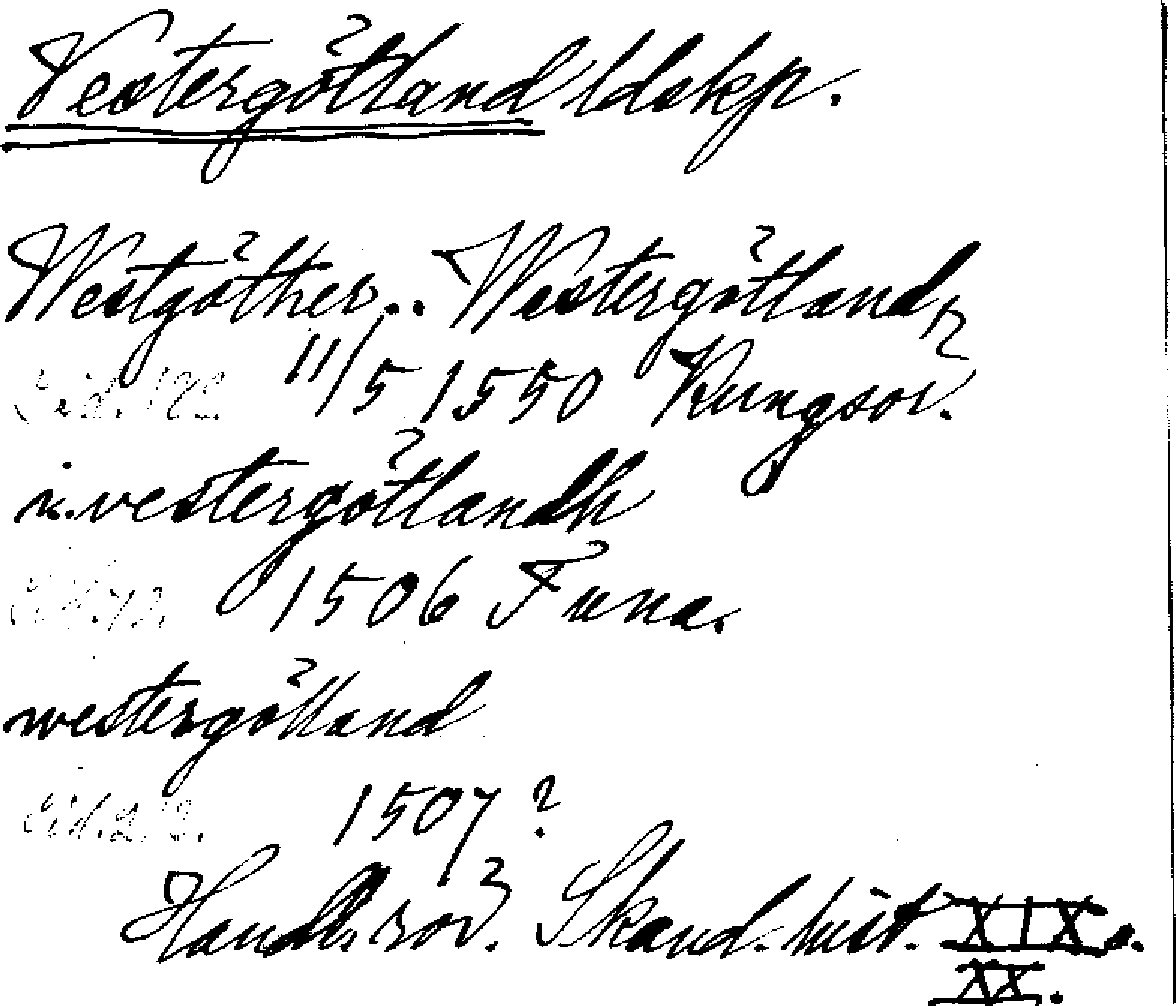 Vestergötland ldskp.
Westgöther.. Westergötland,
Sid. 11/5 1550 Kungsör.
i. vestergötlandh
Sid. 1506 Tuna.
westergötland
Sid. 1507?
Handl. rör. Skand. hist. XIX o.
XX.